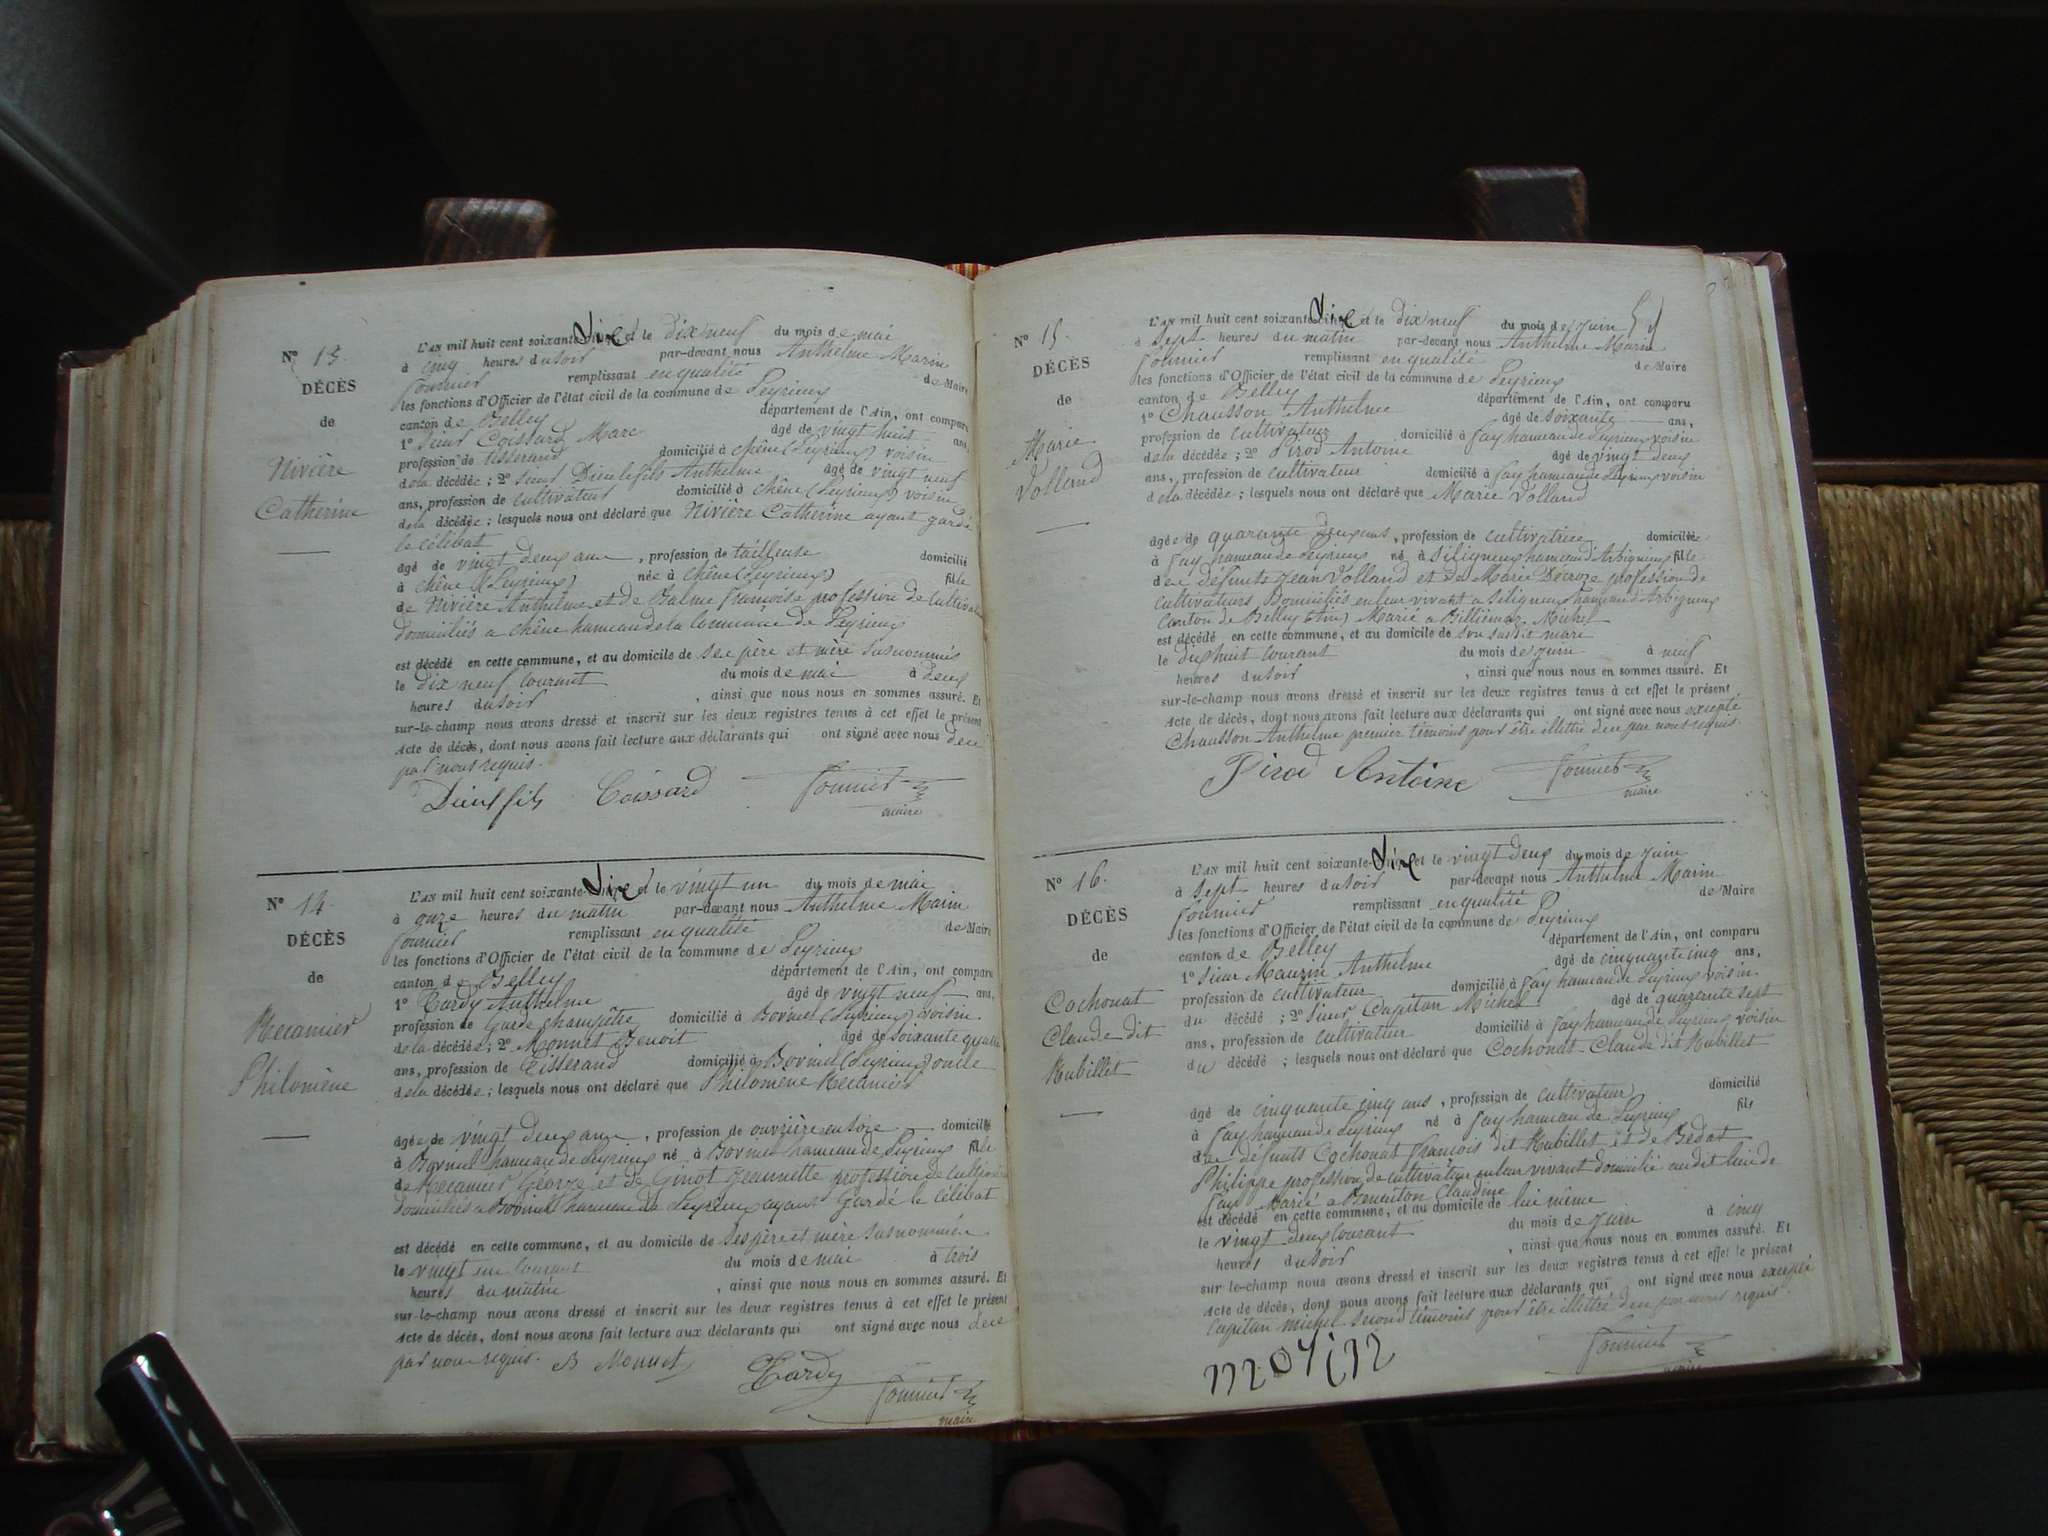 N° 13.
DÉCÈS
de
Nivière
Catherine
L'AN mil huit cent soixante dix et le dix neuf du mois de mai
à cinq heures du soir par-devant nous Anthelme Marin
Fournier remplissant en qualité de Maire
les fonctions d'Officier de l'état civil de la commune de Peyrieux
canton de Belley département de l'Ain, ont comparu
1° Sieur Coissard Marc âgé de vingt huit ans,
profession de tisserand domicilié à Chêne (Peyrieux) voisin
de la décédée ; 2° Sieur Dieulefils Anthelme âgé de vingt neuf
ans, profession de cultivateur domicilié à Chêne (Peyrieux) voisin
de la décédée ; lesquels nous ont déclaré que Nivière Catherine ayant gardé
le célibat
âgé de vingt deux ans, profession de tailleuse domicilié
à Chêne (Peyrieux) née à Chêne (Peyrieux) fille
de Nivière Anthelme et de Balme françoise profession de cultivateurs
domiciliés a Chêne hameau de la Commune de Peyrieux
est décédé en cette commune, et au domicile de ses père et mère susnommés
le dix neuf courant du mois de mai à deux
heures du soir, ainsi que nous nous en sommes assuré. Et
sur-le-champ nous avons dressé et inscrit sur les deux registres tenus à cet effet le présent
acte de décès, dont nous avons fait lecture aux déclarants qui ont signé avec nous de ce
par nous requis.
Coissard Fournier
maire
N° 14.
DÉCÈS
de
Recamier
Philomène
L'AN mil huit cent soixante dix et le vingt un du mois de mai
à onze heures du matin par-devant nous Anthelme Marin
Fournier remplissant en qualité de Maire
les fonctions d'Officier de l'état civil de la commune de Peyrieux
canton de Belley département de l'Ain, ont comparu
1° Tardy Anthelme âgé de vingt neuf ans,
profession de Garde champêtre domicilié à Bovinel (Peyrieux) voisin
de la décédée ; 2° Monnet Benoit âgé de soixante quatre
ans, profession de Tisserand domicilié à Bovinel (Peyrieux) oncle
de la décédée ; lesquels nous ont déclaré que Philomène Recamier
âgée de vingt deux ans, profession de ouvrière en soie domiciliée
à Bovinel hameau de Peyrieux né à Bovinel hameau de Peyrieux fille
de Recamier George et de Ginot Jeannette profession de cultivateurs
domiciliés a Bovinel hameau de Peyrieux ayant Gardé le célibat
est décédé en cette commune, et au domicile de ses père et mère susnommés
le vingt un courant du mois de mai à trois
heures du matin, ainsi que nous nous en sommes assuré. Et
sur-le-champ nous avons dressé et inscrit sur les deux registres tenus à cet effet le présent
acte de décès, dont nous avons fait lecture aux déclarants qui ont signé avec nous de ce
par nous requis. B Monnet Tardy Fournier
maire
N° 15.
DÉCÈS
de
Marie
Volland
L'AN mil huit cent soixante dix et le dix neuf du mois de Juin
à sept heures du matin par-devant nous Anthelme Marin
Fournier remplissant en qualité de Maire
les fonctions d'Officier de l'état civil de la commune de Peyrieux
canton de Belley département de l'Ain, ont comparu
1° Chausson Anthelme âgé de soixante ans,
profession de cultivateur domicilié à Fay hameau de Peyrieux voisin
de la décédée ; 2° Pirod Antoine âgé de vingt deux
ans, profession de cultivateur domicilié à Fay hameau de Peyrieux voisin
de la décédée ; lesquels nous ont déclaré que Marie Volland
âgée de quarante deux ans, profession de cultivatrice domiciliée
à Fay hameau de Peyrieux né à Siligneux hameau d'Arbignieu fille
des défunts Jean Volland et de Marie Décroze profession de
cultivateurs Domiciliés en leur vivant a Siligneux hameau d'Arbignieu
Canton de Belley (Ain) Marié a Billiemaz Michel
est décédé en cette commune, et au domicile de son susdit mari
le dix huit courant du mois de Juin à neuf
heures du soir, ainsi que nous nous en sommes assuré. Et
sur-le-champ nous avons dressé et inscrit sur les deux registres tenus à cet effet le présent
acte de décès, dont nous avons fait lecture aux déclarants qui ont signé avec nous excepté
Chausson Anthelme premier témoins pour être illettré de ce par nous requis.
Pirod Antoine Fournier
maire
N° 16.
DÉCÈS
de
Cochonat
Claude dit
Rubillet
L'AN mil huit cent soixante dix et le vingt deux du mois de Juin
à sept heures du soir par-devant nous Anthelme Marin
Fournier remplissant en qualité de Maire
les fonctions d'Officier de l'état civil de la commune de Peyrieux
canton de Belley département de l'Ain, ont comparu
1° Sieur Maurin Anthelme âgé de cinquante cinq ans,
profession de cultivateur domicilié à Fay hameau de Peyrieux voisin
du décédé ; 2° Sieur Capitan Michel âgé de quarante sept
ans, profession de cultivateur domicilié à Fay hameau de Peyrieux voisin
du décédé ; lesquels nous ont déclaré que Cochonat Claude dit Rubillet
âgé de cinquante cinq ans, profession de cultivateur domicilié
à Fay hameau de Peyrieux né à Fay hameau de Peyrieux fils
des défunts Cochonat François dit Rubillet et de Bedat
Philippe profession de cultivateur en leur vivant domicilié audit lieu de
Fay Marié a Claudine
est décédé en cette commune, et au domicile de lui même
le vingt deux courant du mois de Juin à cinq
heures du soir, ainsi que nous nous en sommes assuré. Et
sur-le-champ nous avons dressé et inscrit sur les deux registres tenus à cet effet le présent
acte de décès, dont nous avons fait lecture aux déclarants qui ont signé avec nous excepté
Capitan Michel second témoins pour être illettré de ce par nous requis.
Fournier
maire